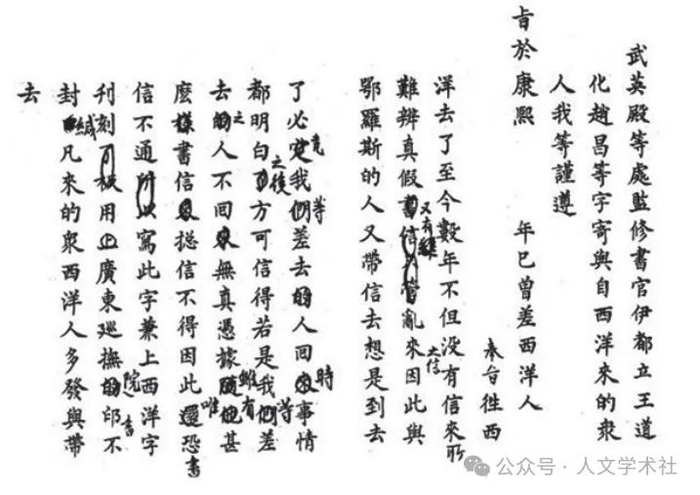 武英殿等處監修書官伊都立王道
化趙昌等字寄與自西洋來的衆
人我等謹遵
旨於康熙 年已曾差西洋人
奉旨徃西
洋去了至今數年不但没有信來所
難辨真假書信又有亂來之信因此與
鄂羅斯的人又帶信去想是到去
了必我們等差去的人回時事情
都明白之後方可信得若是我們等差
去的之人不回來無真憑據縱有甚
麽樣書信捴信不得因此唯恐書
信不通所以寫此字兼上西洋字
刊刻用廣東廵撫院印書不
封緘凡來的衆西洋人多發與帶
去
公众号·人文学术社